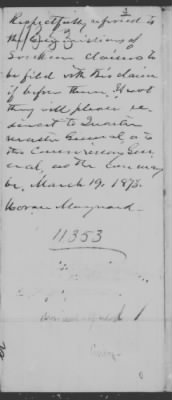 Respectfully referred to
the Commissioners of
Southern Claims to
be filed with this claim
if before them. If not
they will please re-
direct to Quarter
master General or to
the Commissary Gen-
eral, as the case may
be, March 19, 1873.
Horace Maynard
11353